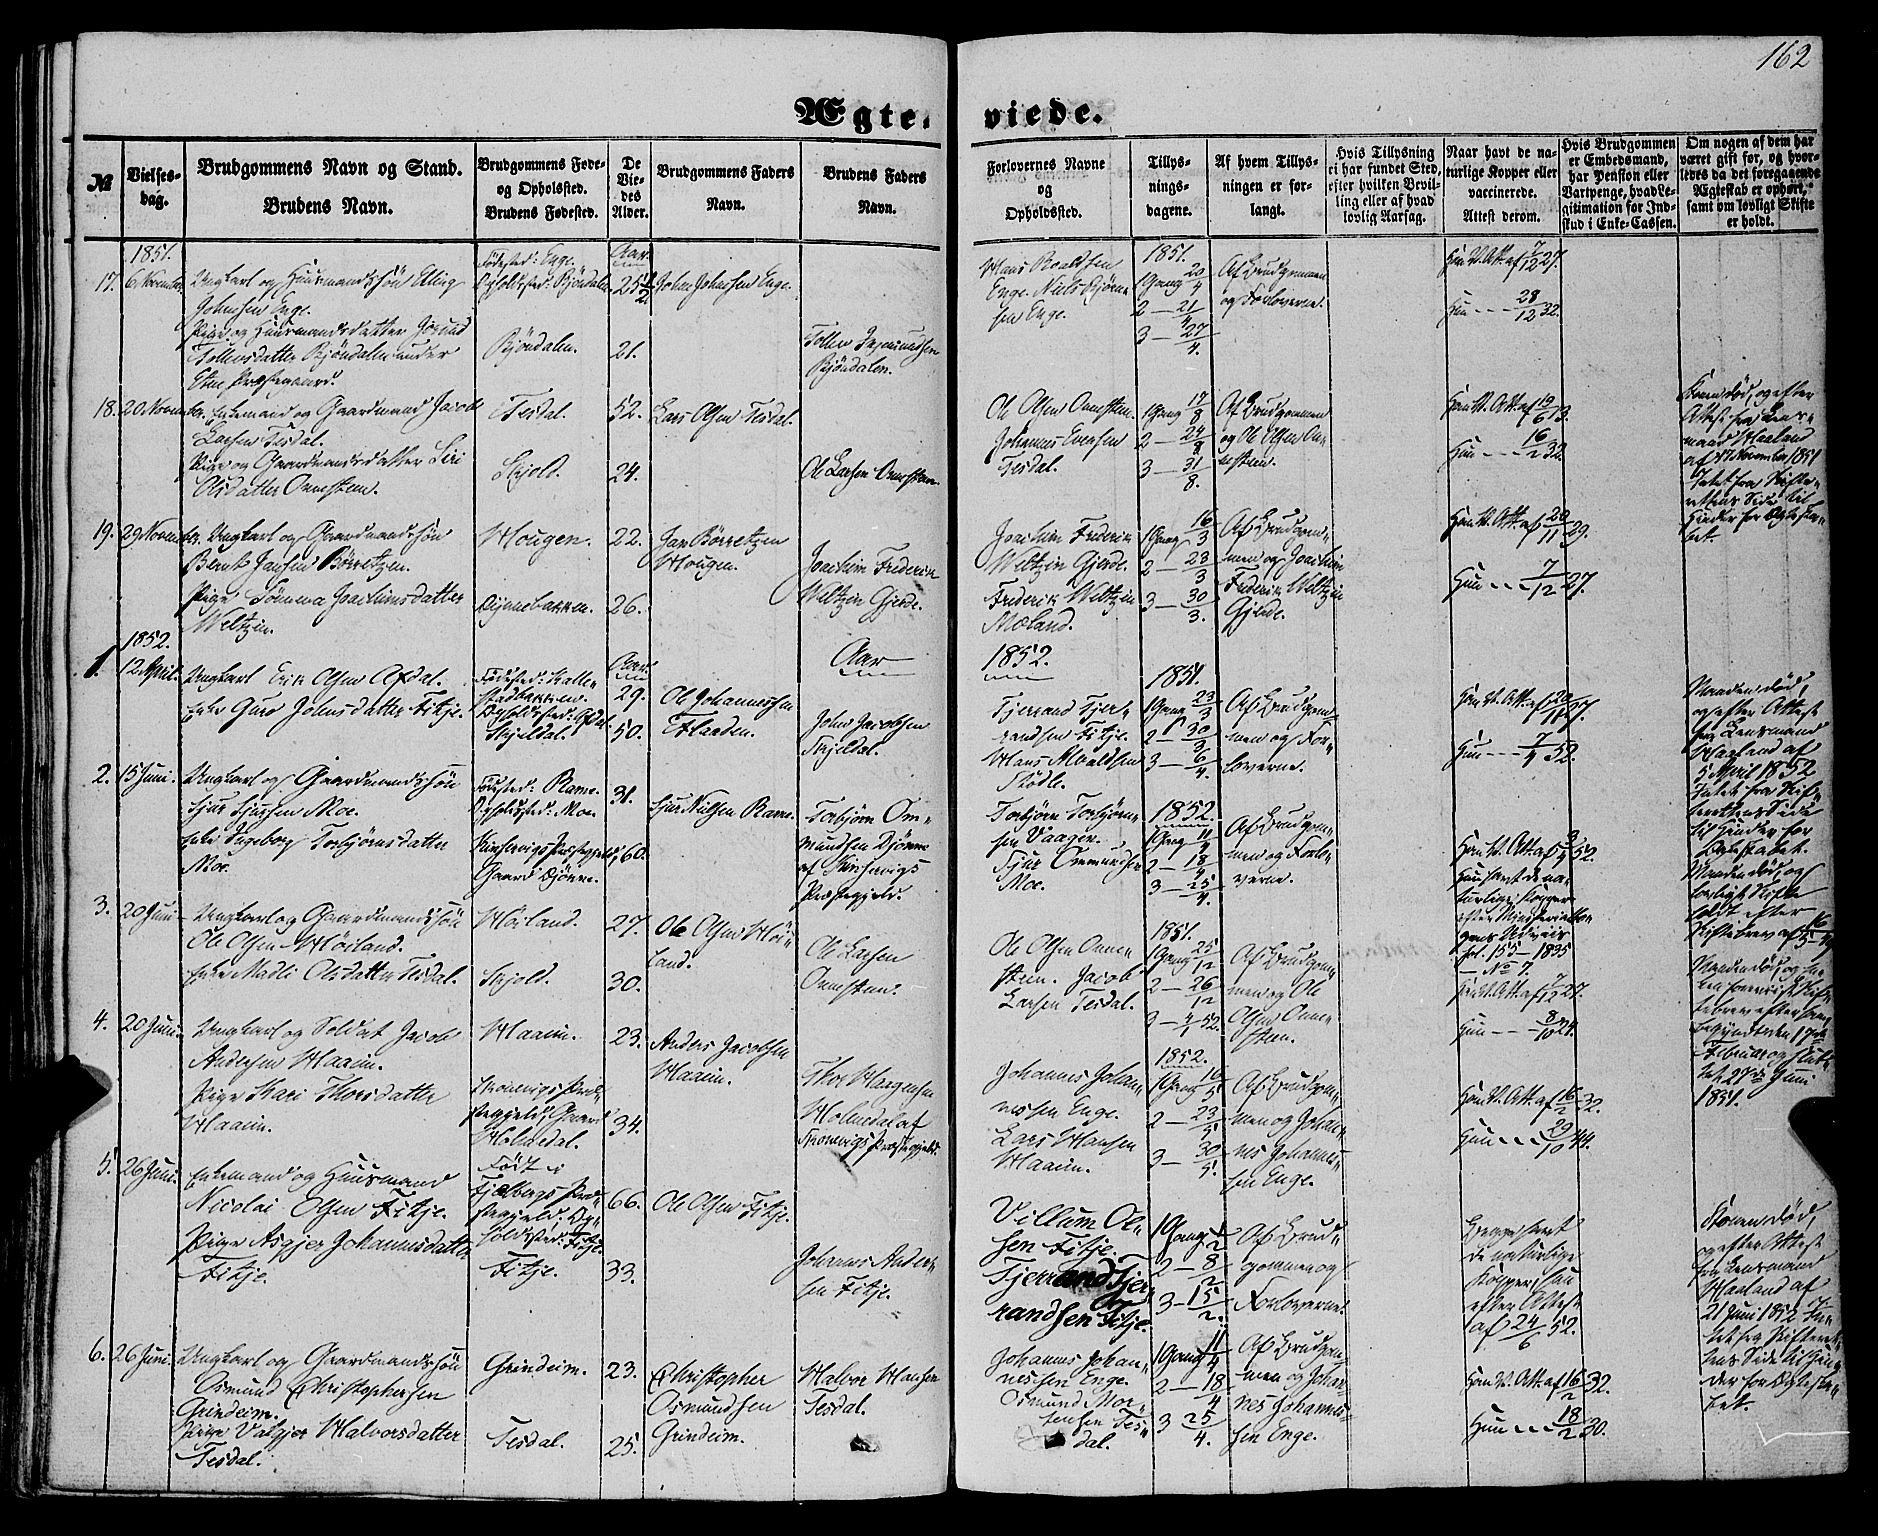 162
Ægte- viede.
№
Vielses-
dag.
Brudgommens Navn og Stand.
Brudens Navn.
Brudgommens Føde-
og Opholsted.
Brudens Fødested.
De
Vie-
des
Alder.
Brudgommens Faders
Navn.
Brudens Faders
Navn.
Forlovernes Navne
og
Opholdssted.
Tillys-
nings-
dagene.
Af hvem Tillys-
ningen er for-
langt.
Hvis Tillysning
ei har fundet Sted,
efter hvilken Bevil-
ling eller af hvad
lovlig Aarsag.
Naar havt de na-
turlige Kopper eller
vaccinerede.
Attest derom.
Hvis Brudgommen
er Embedsmand,
har Pension eller
Vartpenge, hvad Le-
gitimation for Ind-
skud i Enke-Cassen.
Om nogen af dem har
været gift før, og hvor-
ledes da det foregaaende
Ægteskab er ophørt,
samt om lovligt Skifte
er holdt.
1851.
17. 6 November. Ungkarl og Huusmandssøn Elling
Johnsen Enge.
Pige og Huusmandsdatter Jorund
Tollevsdatter Bjøndalen under
Etne Præstegaard.
Fødested: Enge.
Opholdsted: Bjøndalen
Bjøndalen.
Aar.
25½
21.
John Johnsen Enge.
Bjøndalen.
Hans Roaldsen
Enge. Niels Bjørn-
sen Enge.
1851.
1 Gang 20/4
2 — 21/4
3 — 27/4.
Af Brudgommen
og Forloverne.
Han V. Att. af 7/12 27.
Hun - - - 28/12 32.
18. 20 November. Enkemand og Gaardmand Jacob
Larsen Tesdal.
Pige og Gaardmandsdatter Siri
Olsdatter Onnesteen.
Tesdal.
Skjold.
52.
24.
Lars Olsen Tesdal.
Ole Larsen Onnesteen.
Ole Olsen Onnesteen.
Johannes Iversen
Tesdal.
1 Gang 17/8
2 — 24/8
3 — 31/8.
Af Brudgommen
og Ole Olsen On-
nesteen.
Han V. Att. af 19/6 13.
Hun - - - 16/2 32.
Konen død, og efter
Attest fra Lens-
mand Haaland
af 17 November 1851
Intet fra Skifte-
rettens Side til
Hinder for Ægteska-
bet.
19. 29 November. Ungkarl og Gaardmandssøn
Bernt Jansen Børretzen.
Pige Tomina Joachimsdatter
Weltzin.
Hougen.
22.
26.
Jan Børretzen
Hougen.
Joachim Frederik
Weltzin Gjerde.
Joachim Frederik
Weltzin Gjerde.
Frederik Weltzin
Mæland.
1 Gang 16/3
2 — 23/3
3 — 30/3.
Af Brudgom-
men og Joachim
Frederik Weltzin
Gjerde.
Han V. Att. af 20/11 29.
Hun - - - 7/12 27.
1852.
1. 12 April. Ungkarl Erik Olsen Afdal.
Enke Guro Johnsdatter Fitje.
Fødested: Kalle-
stadbakken.
Opholdsted: Afdal.
Skjeldal.
Aar.
29.
50.
Ole Johannessen
Aar
John Jacobsen
Skjeldal.
1852.
Tjerrand Tjer-
randsen Fitje.
Stødle.
1851.
1 Gang 23/3
2 — 30/3
3 — 6/4.
Af Brudgom-
men og For-
loverne.
Hun - - - 7/4 52.
Manden død,
og efter Attest
fra Lensmand
Haaland af
5 April 1852
Intet fra Skif-
terettens Side
til Hinder for
Ægteskabet.
2. 15 Juni. Ungkarl og Gaardmandssøn
Sjur Sjursen Moe.
Enke Ingeborg Torbjørnsdatter
Moe.
Fødested: Rame.
Opholdsted: Moe.
Kinservigs Præstegjeld,
Gaard Djønne.
31.
60.
Sjur Nielsen Rame.
Torbjørn Om-
mundsen Djønne
af Kinservigs
Præstegjeld.
Torbjørn Torbjørn-
sen Vaagen.
Sjur Ommundsen
Moe.
1852.
1 Gang 11/4
2 — 18/4
3 — 25/4.
Af Brudgom-
men og Forlo-
verne.
Hun havt de na-
turlige Kopper
efter Ministerialbo-
gens Udviis
fol. 155 — 1835
— No 7.
Manden død, og
lovligt Skifte
holdt efter
3. 20 Juni. Ungkarl og Gaardmandssøn
Ole Olsen Høiland.
Enke Madli Olsdatter Tesdal.
Høiland.
Skjold.
27.
30.
Ole Olsen Høi-
land.
Ole Larsen
Onnesteen.
Ole Olsen Onne-
steen. Jacob
Larsen Tesdal.
1851.
1 Gang 25/12
2 — 26/12
3 — 4/1 52.
Af Brudgom-
men og Ole
Olsen Onne-
steen.
Han V. Att. af 7/12 27.
Hun - - - 8/10 24.
1851.
4. 20 Juni. Ungkarl og Soldat Jacob
Andersen Haaim.
Pige Kari Thorsdatter
Haaim.
Haaim.
Skonevigs Præ-
stegjeld, Gaard
Holmedal.
23.
34.
Anders Jacobsen
Haaim.
Holmedal af
Skonevigs Præstegjeld.
Johannes Johan-
nessen Enge.
Lars Hansen
Haaim.
1852.
1 Gang 16/5
2 — 23/5
3 — 30/5.
Af Brudgom-
men og Johan-
nes Johannes-
sen Enge.
Han V. Att. af 16/2 32.
Hun - - - 29/10 44.
5. 26 Juni. Enkemand og Huusmand
Nicolai Olsen Fitje.
Pige Asgjer Johannesdatter
Fitje.
Født i
Fjelbergs Præ-
stegjeld. Op-
holdsted: Fitje.
Fitje.
66.
33.
Ole Olsen Fitje.
Johannes Ander-
sen Fitje.
Villum Ol-
sen Fitje.
Tjerrand Tjer-
randsen Fitje.
1 Gang 1/2
2 — 8/2
3 — 15/2.
Af Brud-
gommen og
Forloverne.
Begge havt
de naturlige
Kopper, han
efter Attest
af 24/6 52.
Konen død,
og efter Attest
fra Lensmand
Haaland af
21 Juni 1852 In-
tet fra Skifteret-
tens Side til Hin-
der for Ægteska-
bet.
6. 26 Juni. Ungkarl og Gaardmandssøn
Osmund Christophersen
Grindeim.
Pige Valgjer Halvorsdatter
Tesdal.
Grindeim.
Tesdal.
23.
25.
Christopher
Osmundsen
Grindeim.
Halvor Hansen
Tesdal.
Johannes Johan-
nessen Enge.
Osmund Mor-
tensen Tes-
dal.
1 Gang 11/4
2 — 18/4
3 25/4.
Af Brudgom-
men og Johan-
nes Johannes-
sen Enge.
Han V. Att. af 16/2 32.
Hun - - - 18/2 30.